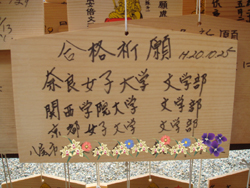 合格祈願
H20.10.25
奈良女子大学 文学部
関西学院大学 文学部
京都女子大学 文学部